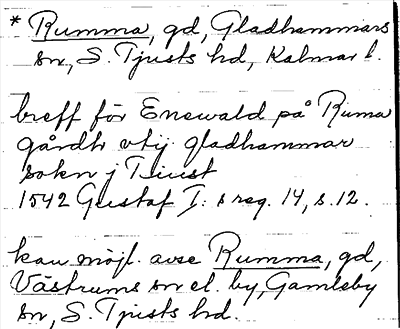 * Rumma, gd, Gladhammars
sn, S. Tjusts hd, Kalmar l.
breff för Enewald på Ruma
gårdh vtij gladhammar
sokn j Tiust
1542 Gustaf I:s reg. 14, s. 12.
kan möjl. avse Rumma, gd,
Västrums sn el. by, Gamleby
sn, S. Tjusts hd.